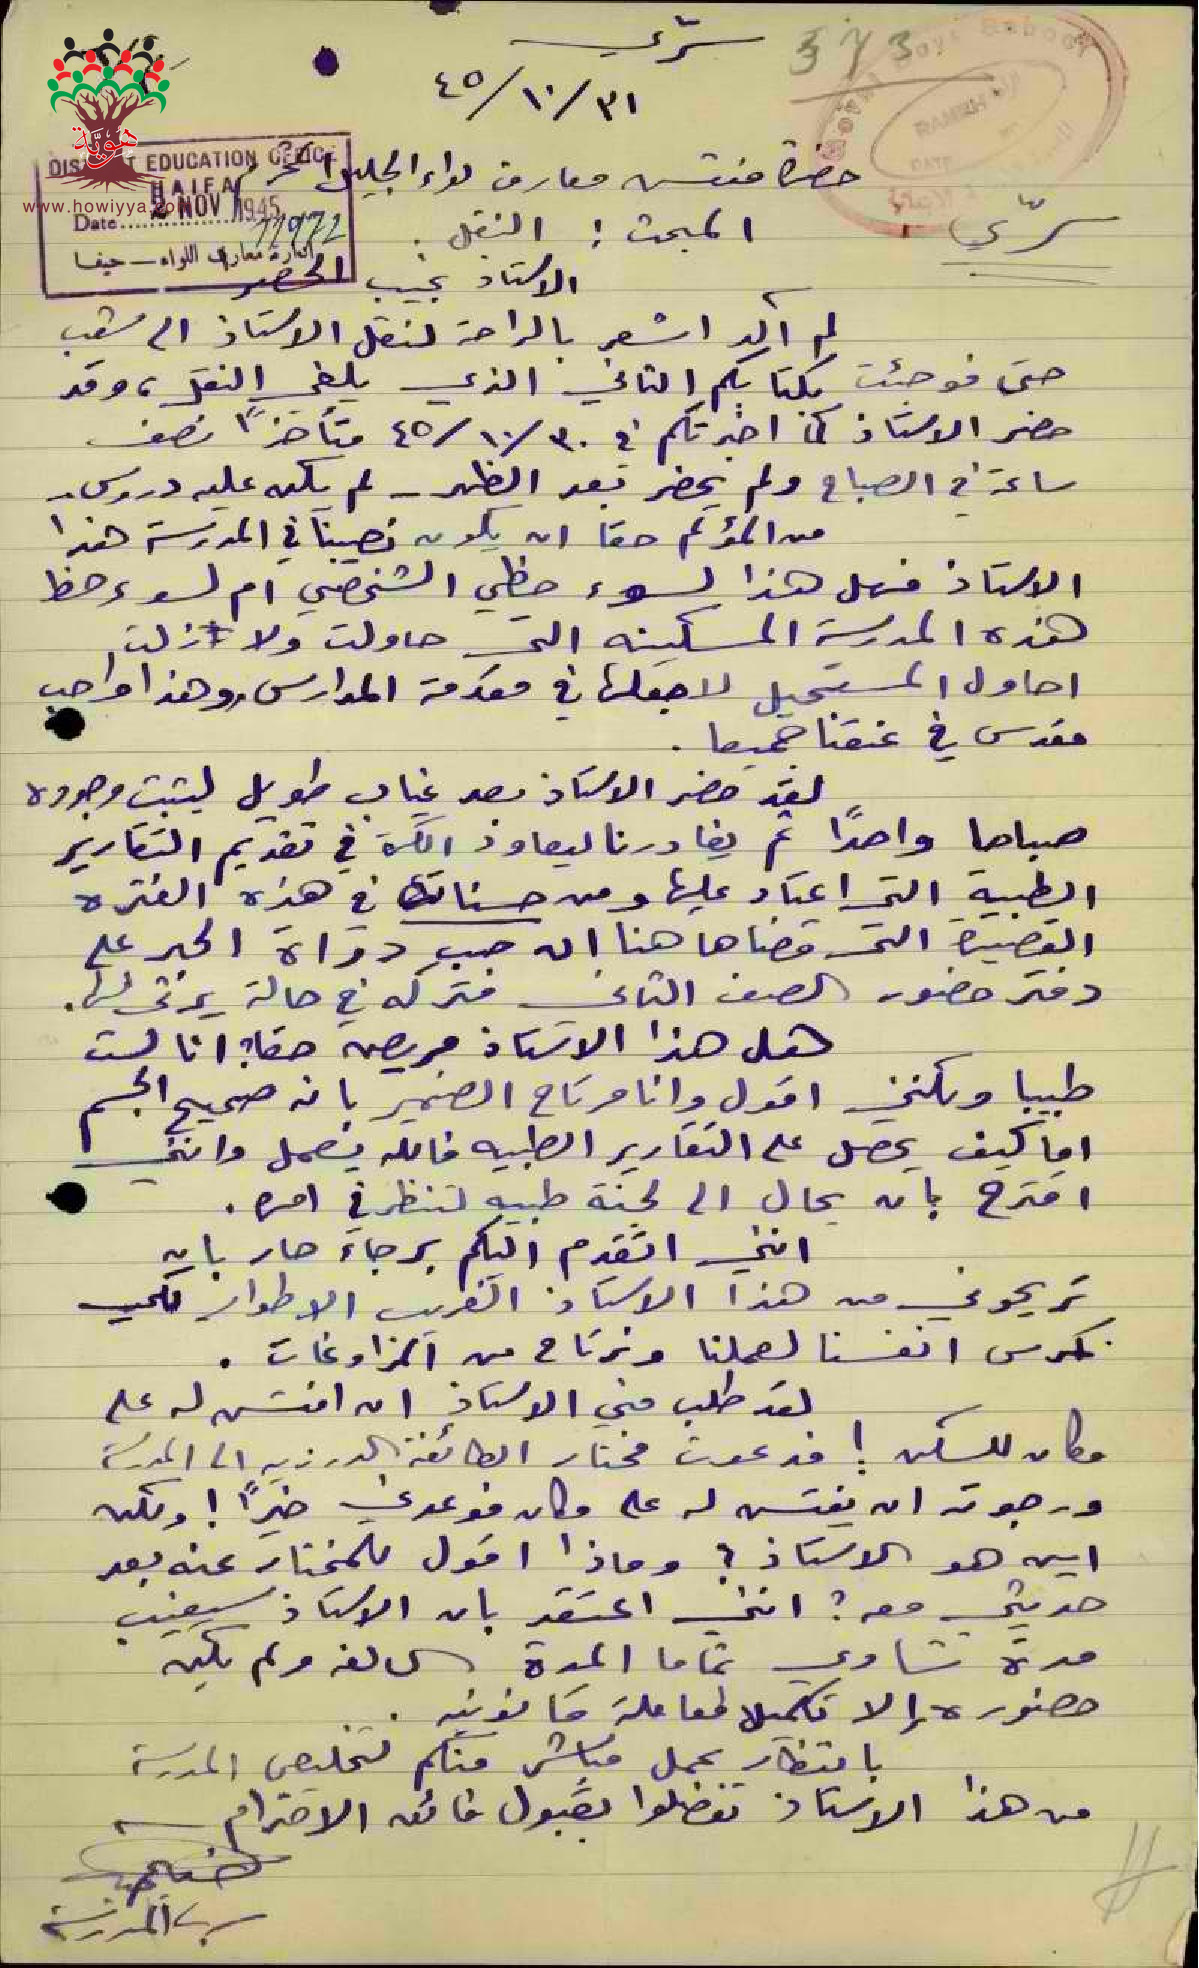 سرّي
573
٤٥/١٠/٣١
هوية
www.howiyya.com
DISTRICT EDUCATION OFFICE
HAIFA
Date 2 NOV 1945
11972
ادارة معارف اللواء — حيفا
Boys School
RAMEH
DATE
حضرة مفتش معارف لواء الجليل المحترم
سرّي
المبحث : النقل .
الاستاذ نجيب الخضر
لم أكد اشعر بالراحة لنقل الاستاذ الى شعب
حتى فوجئت بكتابكم الثاني الذي يلغي النقل، وقد
حضر الاستاذ كما اخبرتكم في ٤٥/١٠/٣٠ متأخرًا نصف
ساعة في الصباح ولم يحضر بعد الظهر - لم يكن عليه دروس -
من المؤلم حقا ان يكون نصيبنا في المدرسة هذا
الاستاذ فهل هذا لسوء حظي الشخصي ام لسوء حظ
هذه المدرسة المسكينه التي حاولت ولا زلت
احاول المستحيل لاجعلها في مقدمة المدارس وهذا واجب
مقدس في عنقنا جميعا .
لقد حضر الاستاذ بعد غياب طويل ليثبت وجوده
صباحا واحدًا ثم يغادرنا ليعاود الكرة في تقديم التقارير
الطبية التي اعتاد عليها ومن حسناته في هذه الفتره
القصيرة التي قضاها هنا ان صب دواة الحبر على
دفتر حضور الصف الثاني فتركه في حالة يرثى لها .
هل هذا الاستاذ مريض حقا؟ انا لست
طبيبا ولكنني اقول وانا مرتاح الضمير بانه صحيح الجسم
اما كيف يحصل على التقارير الطبيه فالله يعمل وانني
اقترح بان يحال الى لجنة طبيه لتنظر في امره .
انني اتقدم اليكم برجاء حار بان
تريحوني من هذا الاستاذ الغريب الاطوار لكي
نكرس انفسنا لعملنا ونرتاح من المراوغات .
لقد طلب مني الاستاذ ان افتش له على
مكان للسكن ! فدعوت مختار الطائفة الدرزيه الى المدرسة
ورجوته ان يفتش له على مكان فوعدني خيرًا ! ولكن
اين هو الاستاذ ؟ وماذا اقول للمختار عنه بعد
حديثي معه ؟ انني اعتقد بان الاستاذ سيغيب
مدة تساوي تماما المدة السالفه ولم يكن
حضوره إلا تكميلا لمعاملة قانونيه .
بانتظار عمل مباشر منكم لتخليص المدرسة
من هذا الاستاذ تفضلوا بقبول فائق الاحترام
المدرسة